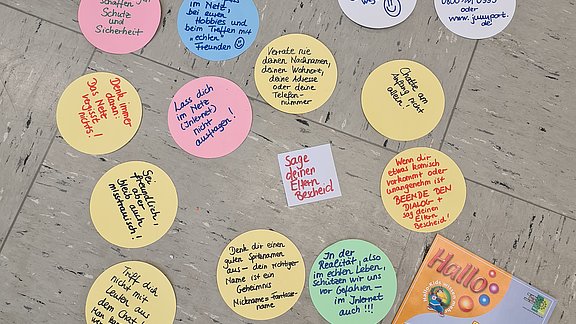 schaffen
Schutz
und
Sicherheit
im
Netz,
bei euren
Hobbies und
beim Treffen mit
"echten"
Freunden
weg
oder
www.juuuport.
de
Verrate nie
deinen Nachnamen,
deinen Wohnort,
deine Adresse
oder deine
Telefon-
nummer
Chatte am
Anfang nicht
allein.
Denk immer
daran:
Das Netz
vergisst
nichts!
Lass dich
im Netz
(Internet)
nicht
ausfragen!
Sage
deinen
Eltern
Bescheid
Wenn dir
etwas komisch
vorkommt oder
unangenehm ist
BEENDE DEN
DIALOG +
sag deinen
Eltern
Bescheid!
Sei
freundlich,
aber auch
bleib
misstrauisch!
Denk dir einen
guten Spitznamen
aus - dein richtiger
Name ist ein
Geheimnis
Nickname = Fantasie-
name
In der
Realität, also
im echten Leben,
schützen wir uns
vor Gefahren -
im Internet
auch !!!
Triff dich
nicht mit
Leuten aus
dem Chat!
Man kann
Hallo